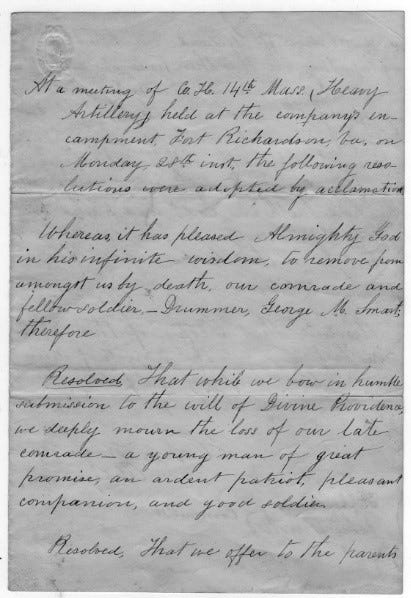 At a meeting of Co. H. 14th Mass. (Heavy
Artillery) held at the company's en-
campment, Fort Richardson, Va., on
Monday 28th inst, the following reso-
lutions were adopted by acclamation
Whereas, it has pleased Almighty God
in his infinite wisdom, to remove from
amongst us by death, our comrade and
fellow soldier, - Drummer, George M. Smart;
therefore
Resolved, That while we bow in humble
submission to the will of Divine Providence,
we deeply mourn the loss of our late
comrade - a young man of great
promise, an ardent patriot, pleasant
companion, and good soldier.
Resolved, That we offer to the parents